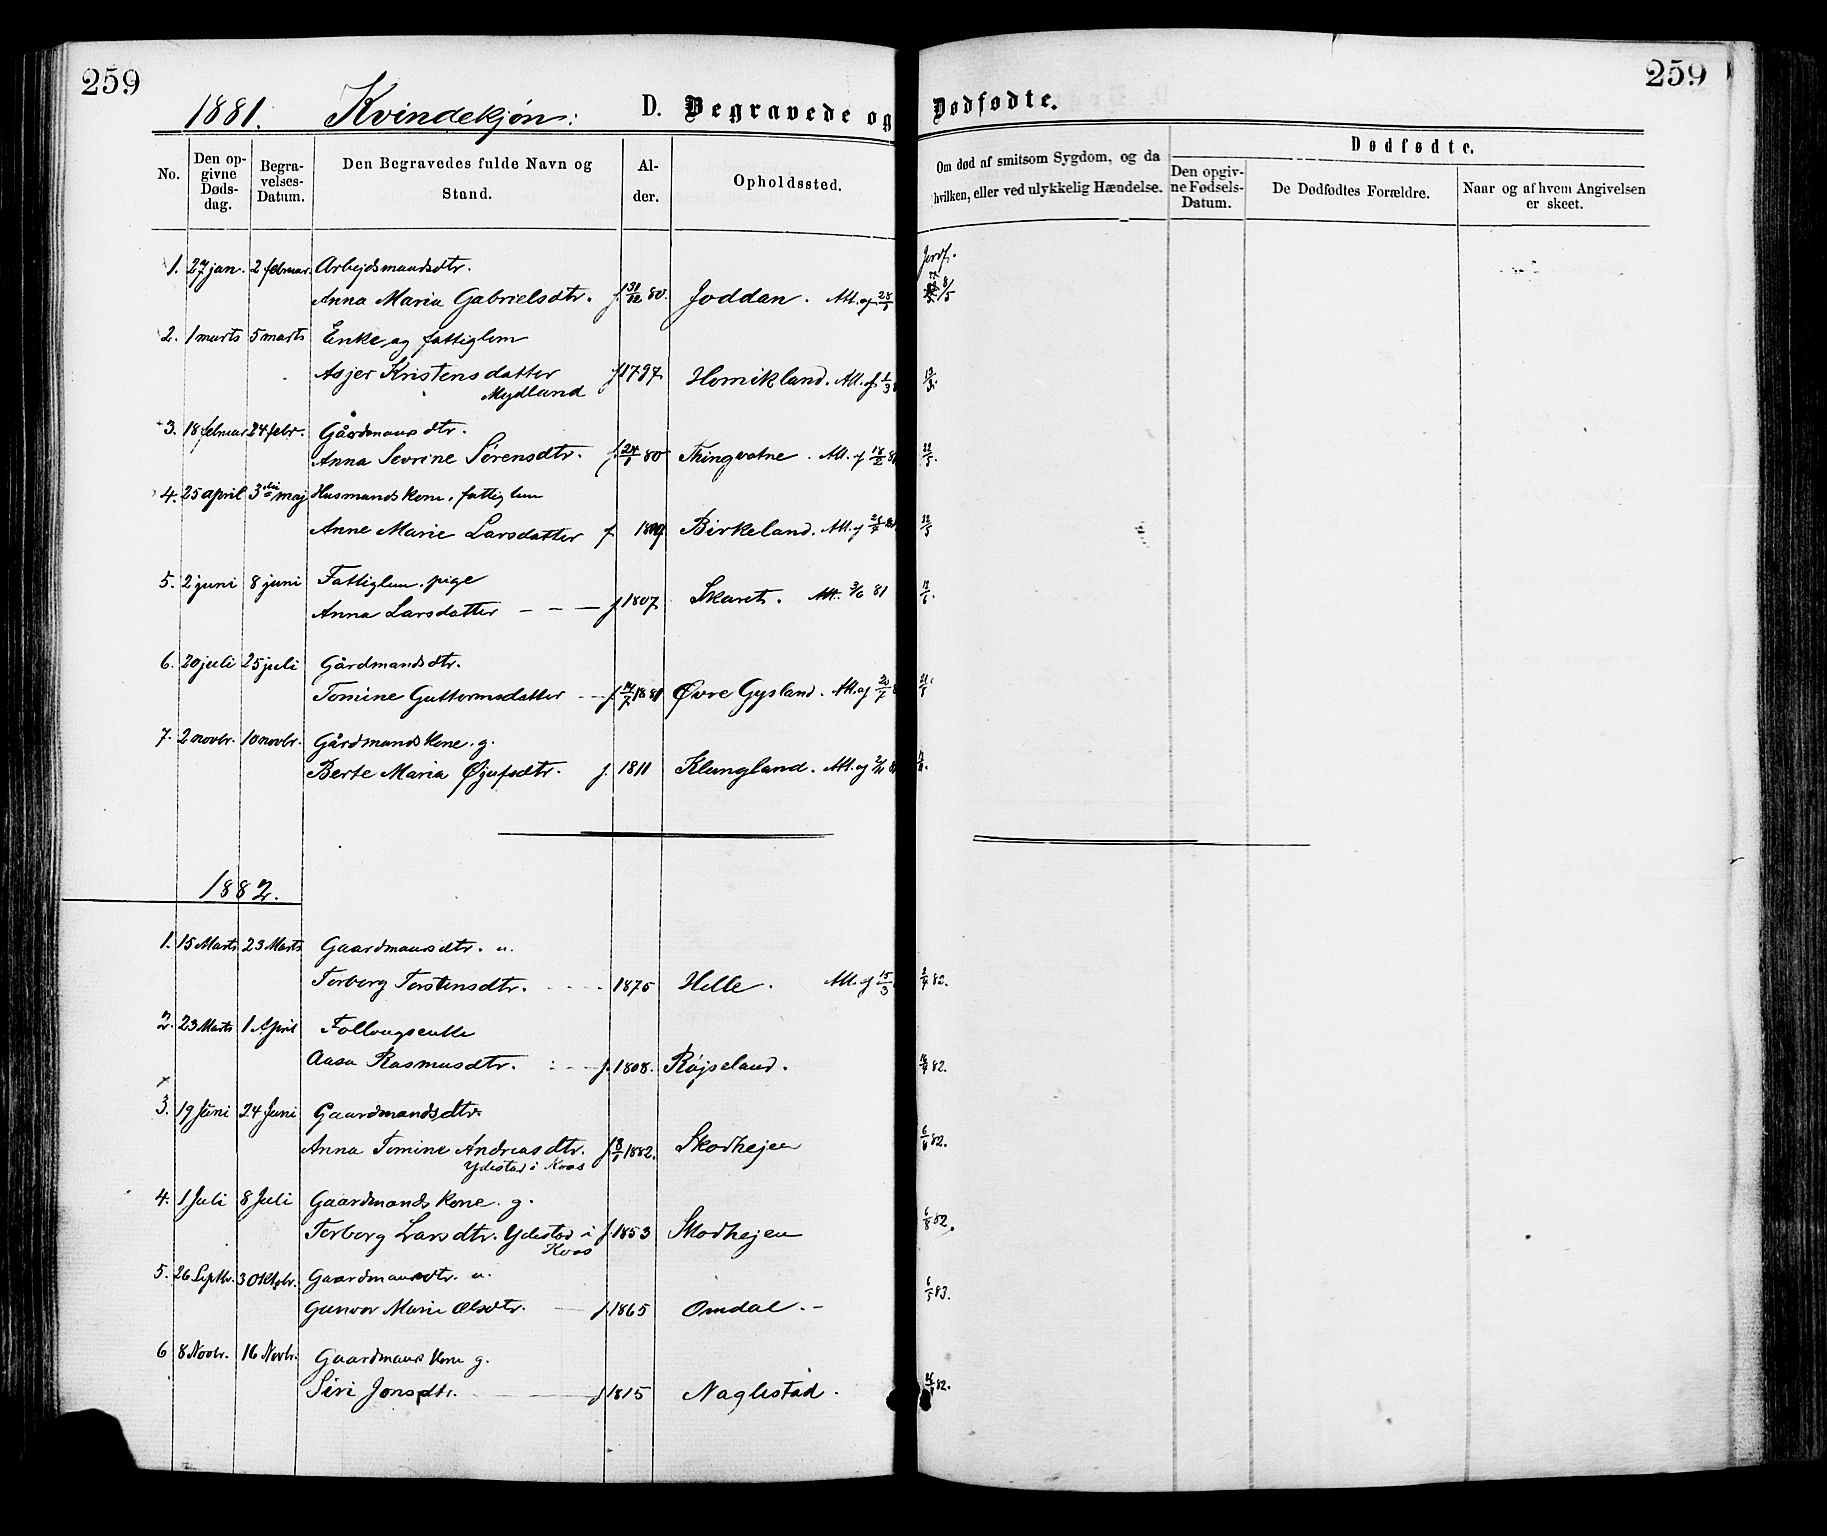 259
259
1881. Kvindekjøn: D. Begravede og Dødfødte.
No.
Den opgivne Dødsdag.
Begravelses-Datum.
Den Begravedes fulde Navn og Stand.
Alder.
Opholdssted.
Om død af smitsom Sygdom, og da hvilken, eller ved ulykkelig Hændelse.
Dødfødte.
Den opgivne Fødsels-Datum.
De Dødfødtes Forældre.
Naar og af hvem Angivelsen er skeet.
1. 27 jan. 2 februar. Arbejdsmandsdtr. Jordf.
Anna Maria Gabrielsdtr. f. 31/12 80. Joddan. Att. af 8/5
2. 1 marts 5 marts Enke og fattiglem
Asjer Kristensdatter f 1797 Homikland. Att. af 1/3
Mydland
3. 18 februar 24 febr. Gårdmansdtr.
Anna Sevrine Sørensdtr. f. 80 Tingvatne. Att. af 18/2 81
4. 25 april 3die maj Husmandskone, fattiglem
Anne Marie Larsdatter f Birkeland. Att. af
5. 2 juni 8 juni Fattiglem, pige
Anna Larsdatter f 1807 Skaret. Att. 3/6 81
6. 20 juli 25 juli Gårdmandsdtr.
Tomine Guttormsdatter f 1881 Øvre Gysland. Att. af
7. 2 novbr. 10 novbr. Gårdmandskone. g.
Berte Maria Øjufsdtr. f. 1811 Klungland. Att. af
1882.
1. 15 Marts 23 Marts Gaardmansdtr. u.
Torborg Torstensdtr. 1875 Helle. Att. af 15/3 82.
2. 23 Marts 1 April
Aasa Rasmusdtr. f. 1808. Røjseland. 82.
3. 19 Juni 24 Juni Gaardmandsdtr.
Anna Tomine Andreasdtr. f 1882. Skodhejen 82.
Ydestad i Kvas
4. 1 Juli 8 Juli Gaardmandskone. g.
Torborg Larsdtr. Ydestad i f. 1853 Skodhejen 6/8 82.
Kvas
5. 26 Septbr. 3 Oktobr. Gaardmansdtr. u.
Gunvor Marie Olsdtr. f. 1865 Omdal. 83.
6 8 Novbr. 16 Novbr. Gaardmans kone g.
Siri Jonsdtr. f 1815 Naglestad. 82.